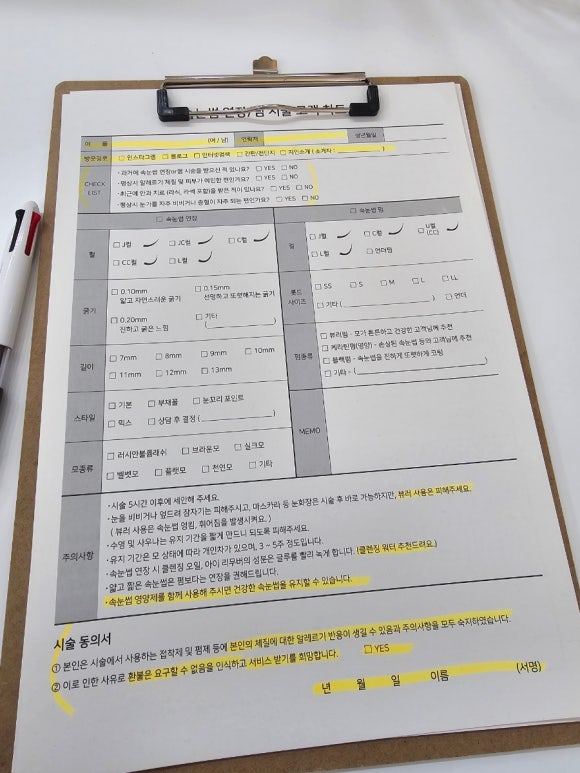 이 름 (여 / 남) 연락처 생년월일
방문경로 □ 인스타그램 □ 블로그 □ 인터넷검색 □ 간판/전단지 □ 지인소개 ( 소개자 : )
CHECK LIST
· 과거에 속눈썹 연장or펌 시술을 받으신 적 있나요? □ YES □ NO
· 평상시 알레르기 체질 및 피부가 예민한 편인가요? □ YES □ NO
· 최근에 안과 치료 (라식, 라섹 포함)을 받은 적이 있나요? □ YES □ NO
· 평상시 눈가를 자주 비비거나 충혈이 자주 되는 편인가요? □ YES □ NO
□ 속눈썹 연장
컬
□ J컬 □ JC컬 □ C컬
□ CC컬 □ L컬
굵기
□ 0.10mm □ 0.15mm
얇고 자연스러운 굵기 선명하고 또렷해지는 굵기
□ 0.20mm □ 기타
진하고 굵은 느낌 ( )
길이
□ 7mm □ 8mm □ 9mm □ 10mm
□ 11mm □ 12mm □ 13mm
스타일
□ 기본 □ 부채꼴 □ 눈꼬리 포인트
□ 믹스 □ 상담 후 결정 ( )
모종류
□ 러시안볼륨래쉬 □ 브라운모 □ 실크모
□ 벨벳모 □ 플랫모 □ 천연모 □ 기타
□ 속눈썹 펌
컬
□ J컬 □ C컬 □ U컬
(CC)
□ L컬 □ 언더펌
롯드 사이즈
□ SS □ S □ M □ L □ LL
□ 기타 ( ) □ 언더
펌종류
□ 뷰러펌 - 모가 튼튼하고 건강한 고객님께 추천
□ 케라틴펌(영양) - 손상된 속눈썹 등의 고객님께 추천
□ 블랙펌 - 속눈썹을 진하게 또렷하게 코팅
□ 기타 - ( )
MEMO
주의사항
· 시술 5시간 이후에 세안해 주세요.
· 눈을 비비거나 엎드려 잠자기는 피해주시고, 마스카라 등 눈화장은 시술 후 바로 가능하지만, 뷰러 사용은 피해주세요.
( 뷰러 사용은 속눈썹 엉킴, 휘어짐을 발생시켜요. )
· 수영 및 사우나는 유지 기간을 짧게 만드니 되도록 피해주세요.
· 유지 기간은 모 상태에 따라 개인차가 있으며, 3 ~ 5주 정도입니다.
· 속눈썹 연장 시 클렌징 오일, 아이 리무버의 성분은 글루를 빨리 녹게 합니다. (클렌징 워터 추천드려요.)
· 얇고 짧은 속눈썹은 펌보다는 연장을 권해드립니다.
· 속눈썹 영양제를 함께 사용해 주시면 건강한 속눈썹을 유지할 수 있습니다.
시술 동의서
① 본인은 시술에서 사용하는 접착제 및 펌제 등에 본인의 체질에 대한 알레르기 반응이 생길 수 있음과 주의사항을 모두 숙지하였습니다.
② 이로 인한 사유로 환불은 요구할 수 없음을 인식하고 서비스 받기를 희망합니다. □ YES
년 월 일 이름 (서명)